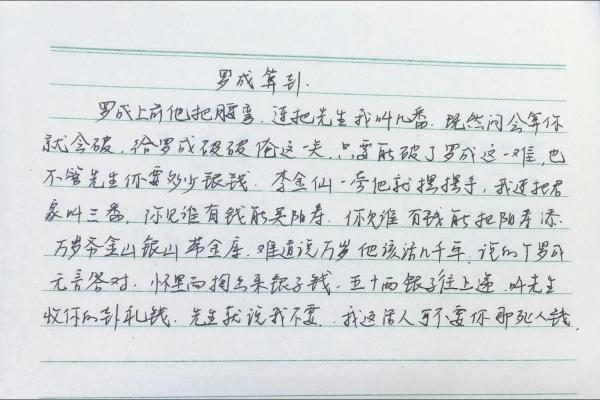 罗成算卦.
罗成上前他把腰弯. 连把先生我叫几番. 既然问会算你
就会破, 给罗成破破俺这一关, 只要能破了罗成这一难, 也
不管先生你要多少银钱. 李金仙一旁他就摆摆手, 我连把君
家叫三番, 你见谁有钱能买阳寿. 你见谁有钱能把阳寿添.
万岁爷金山银山带金库. 难道说万岁他该活几千年, 说的个罗成
无言答对. 怀里面掏出来银子钱. 五十两银子往上递, 叫先生
收你的卦礼钱. 先生就说我不要. 我这活人可不要你那死人钱.